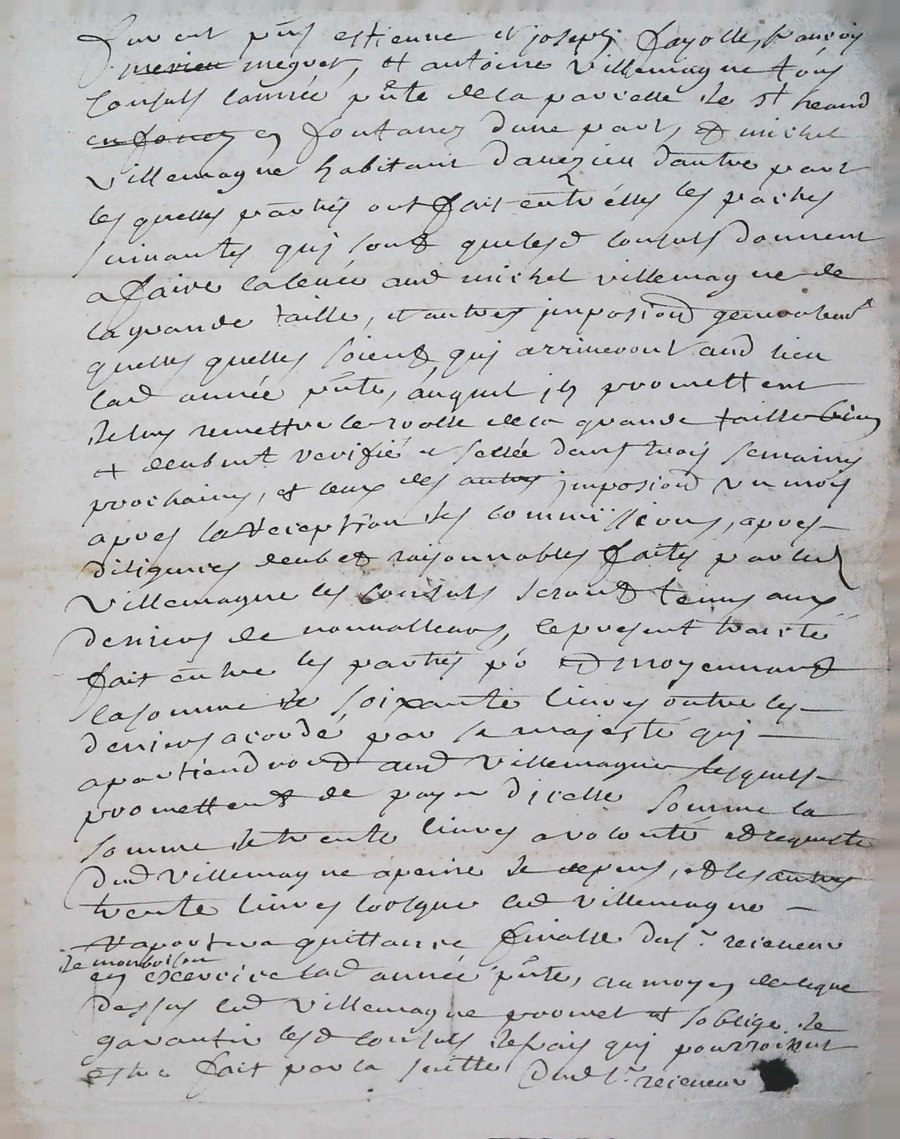 furent pnts estienne et joseph fayolle, francois
merieu meguet, et antoine villemagne tous
consuls lannée pnte de la paroisse de st heand
en fonez en fontanez dune part, et michel
villemagne habitant daveizieu dautre part
lesquelles parties ont fait entre elles les paches
suivantes qui sont que lesd consuls donnent
a faire la levée aud michel villemagne de
la grande taille, et autres imposiond generalemt
quelles quelles soient qui arriveront aud lieu
lad année pnte, auquel ils promettent
de luy remettre le rolle de la grande taille bien
et deubmt verifié et sellée dans trois semaines
prochaines, et ceux des autres imposiond un mois
apres la reception des commissions, apres
diligences deubes et raisonnables faites par led
villemagne les consuls seront tenus aux
deniers de nonvalleurs, le present traité
fait entre les parties po et moyennant
la somme de soixante livres outre les
deniers acordé par sa majesté qui
apartiendront aud villemagne lesquels
promettent de payer dicelle somme la
somme de trente livres a volonté et requeste
dud villemagne a peine de depens, et les autres
trente livres lorsque led villemagne
raportera quittance finalle du sr. receveur
de monbrison
en exercice lad année pnte, au moyen de ce que
dessus led villemagne promet et soblige de
garantir lesd consuls de frais qui pourroient
estre fait par la suitte dud sr. receveur